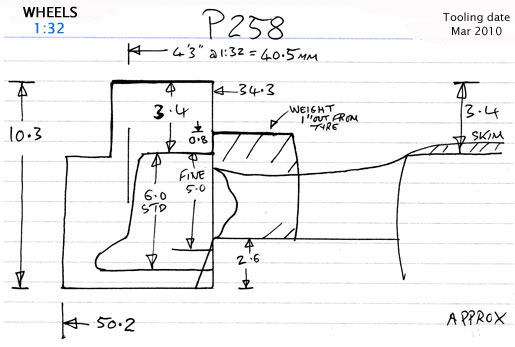 WHEELS
1:32
P258
Tooling date
Mar 2010
4'3" @1:32 = 40.5MM
34.3
3.4
WEIGHT
1"OUT FROM
TYRE
3.4
10.3
0.8
SKIM
6.0
STD
FINE
5.0
2.6
50.2
APPROX